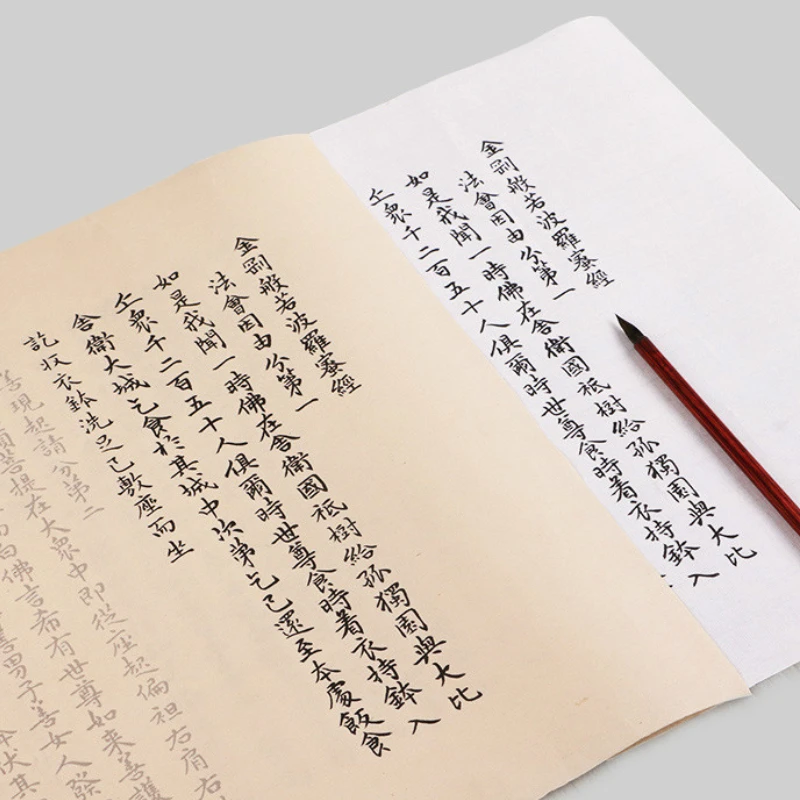 金剛般若波羅蜜經
法會因由分第一
如是我聞一時佛在舍衛國祇樹給孤獨園與大比
丘眾千二百五十人俱爾時世尊食時着衣持鉢入
金剛般若波羅蜜經
法會因由分第一
如是我聞一時佛在舍衛國祇樹給孤獨園與大比
丘眾千二百五十人俱爾時世尊食時着衣持鉢入
舍衛大城乞食於其城中次第乞已還至本處飯食
訖收衣鉢洗足已敷座而坐
善現起請分第二
須菩提在大眾中即從座起偏袒右肩右
佛言希有世尊如來善護
善男子善女人發
伏其